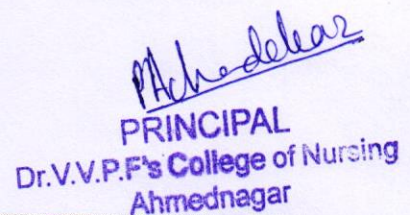 PRINCIPAL
Dr.V.V.P.F's College of Nursing
Ahmednagar